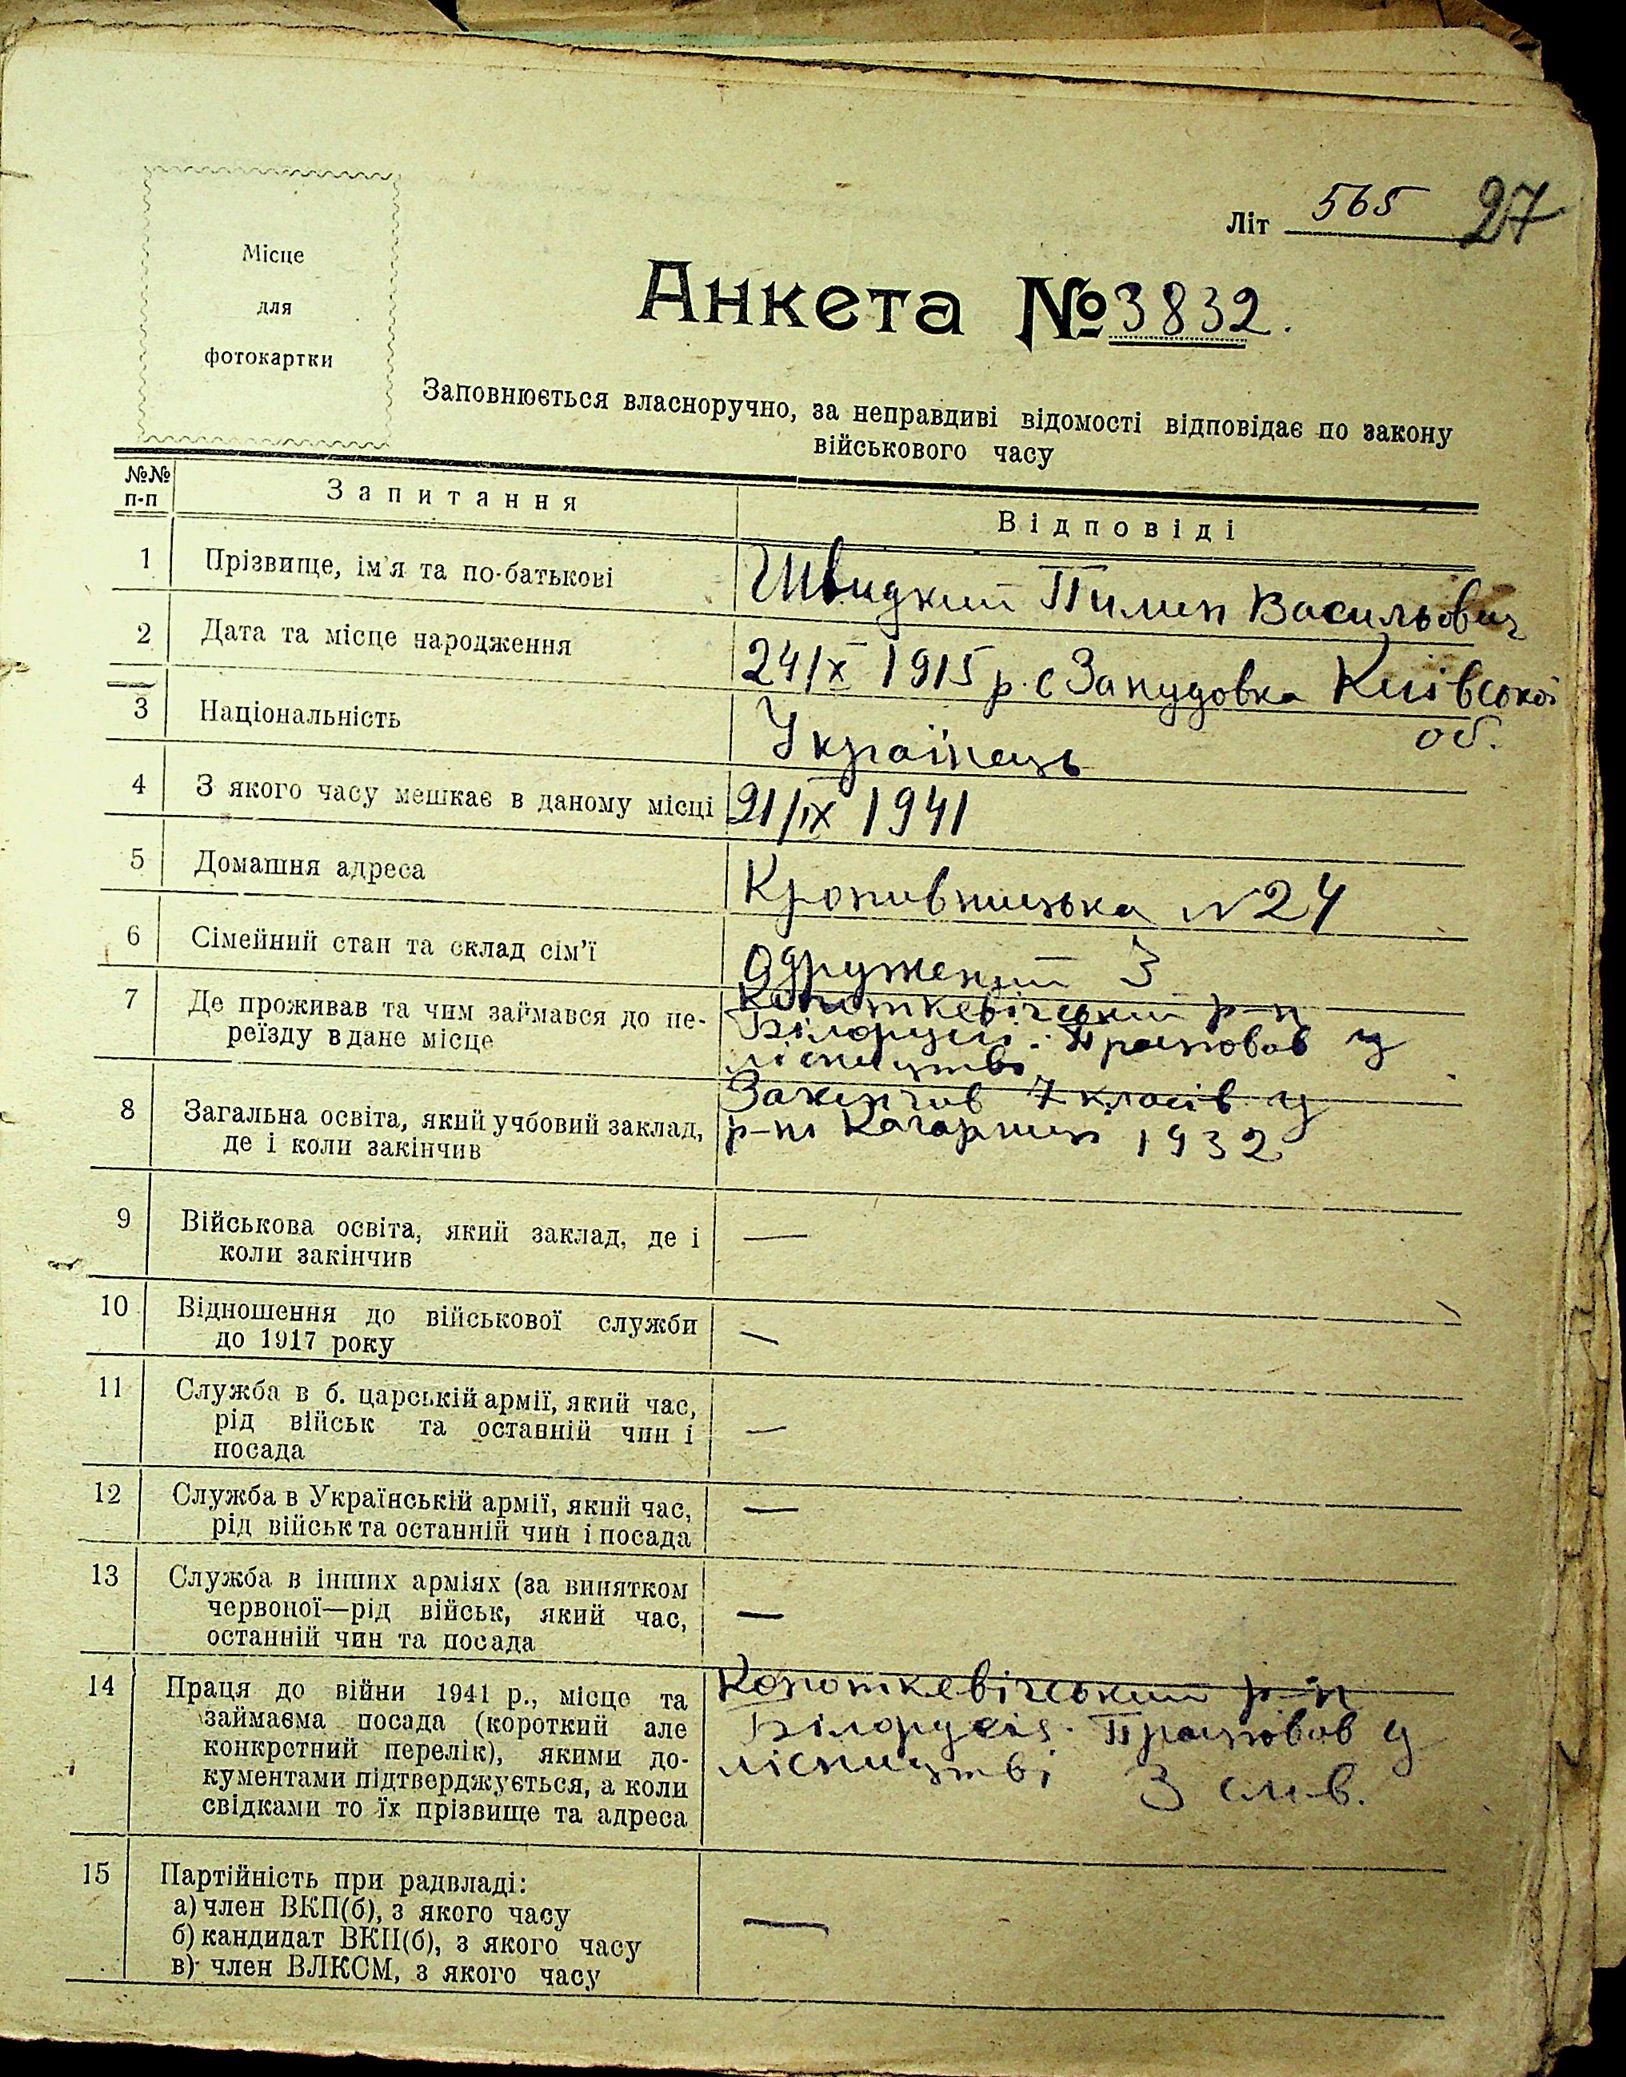 Літ 565 27
Місце
для
фотокартки
Анкета № 3832.
Заповнюється власноручно, за неправдиві відомості відповідає по закону
військового часу
№№
п-п
Запитання
Відповіді
1 Прізвище, ім'я та по-батькові
Швидкий Пимен Васильович
2 Дата та місце народження
24/X 1915 р. с Запудовка Київської
об.
3 Національність
Українець
4 З якого часу мешкає в даному місці
21/IX 1941
5 Домашня адреса
Кропивницька N 24
6 Сімейний стан та склад сім'ї
Одружений 3
7 Де проживав та чим займався до пе-
реїзду в дане місце
Копоткевічський р-н
Білорусії. Працював у
лісництві
8 Загальна освіта, який учбовий заклад,
де і коли закінчив
Закінчив 7 класів у
р-ні Кагарлик 1932
9 Військова освіта, який заклад, де і
коли закінчив
—
10 Відношення до військової служби
до 1917 року
—
11 Служба в б. царській армії, який час,
рід військ та останній чин і
посада
—
12 Служба в Українській армії, який час,
рід військ та останній чин і посада
—
13 Служба в інших арміях (за винятком
червоної—рід військ, який час,
останній чин та посада
—
14 Праця до війни 1941 р., місце та
займаєма посада (короткий але
конкретний перелік), якими до-
кументами підтверджується, а коли
свідками то їх прізвище та адреса
Копоткевічський р-н
Білорусія. Працював у
лісництві
15 Партійність при радвладі:
а) член ВКП(б), з якого часу
б) кандидат ВКП(б), з якого часу
в) член ВЛКСМ, з якого часу
—